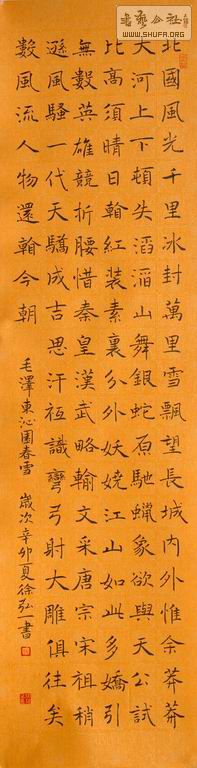 書藝公社
WWW.SHUFA.ORG
北國風光千里冰封萬里雪飄望長城內外惟余莽莽
大河上下頓失滔滔山舞銀蛇原馳蠟象欲與天公試
比高須晴日翰紅裝素裏分外妖嬈江山如此多嬌引
無數英雄競折腰惜秦皇漢武略輸文采唐宗宋祖稍
遜風騷一代天驕成吉思汗祗識彎弓射大雕俱往矣
數風流人物還翰今朝
毛澤東沁園春雪 歲次辛卯夏徐弘一書